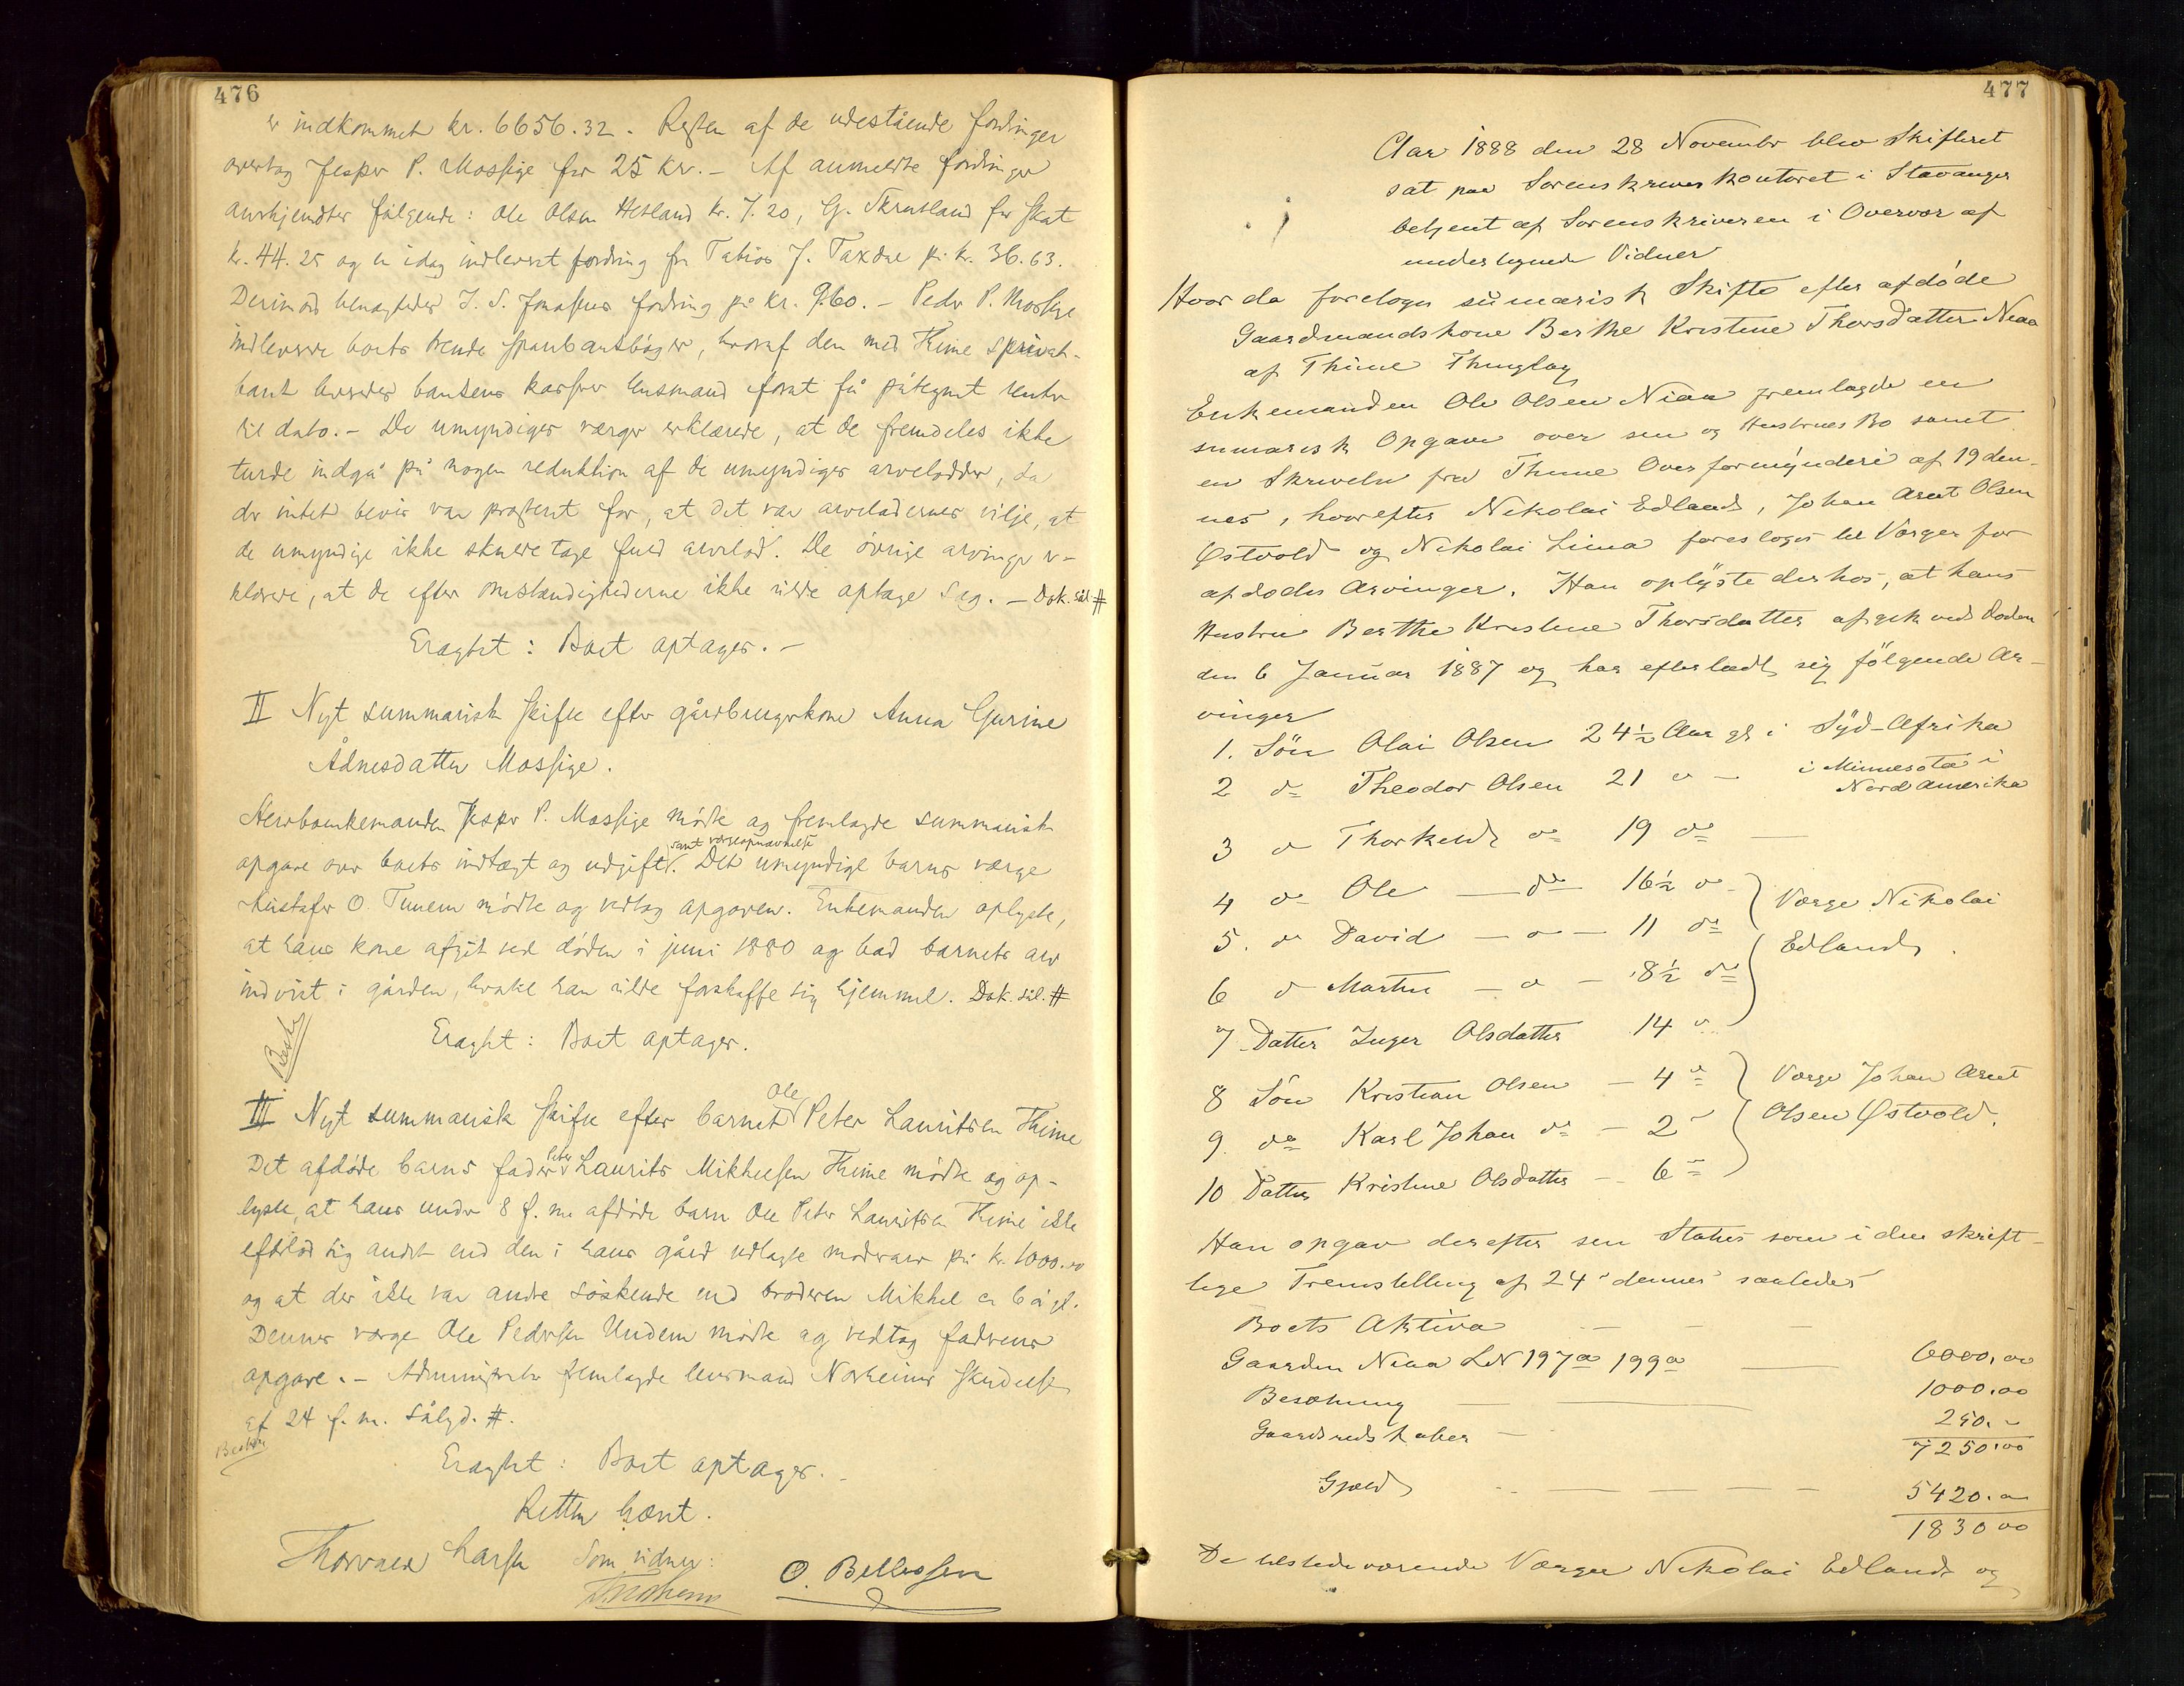 476
er indkommet kr. 6656.32. Resten af de udestående fordringer
overtog Jesper P. Mossige for 25 kr. — Af anmeldte fordringer
anerkjendtes følgende: Ole Olsen Hetland kr. 7.20, G. Skrudland for skat
kr. 44.25 og en idag indleveret fordring fra Tobias J. Taxdal på kr. 36.63.
Derimod benægtedes J. S. Jonassens fordring på kr. 9.60. — Peder P. Mossige
indleverede boets trende sparebankbøger, hvoraf den med Thime sparebank
bank leveredes bankens kasserer lensmand forat få påtegnet renter
til dato. — De umyndiges værger erklærede, at de fremdeles ikke
turde indgå på nogen reduktion af de umyndiges arvelodder, da
der intet bevis var præsteret for, at det var arveladernes vilje, at
de umyndige ikke skulde tage fuld arvelod. De øvrige arvinger er-
klærede, at de efter omstændighederne ikke vilde optage sag. — Dok. sål. #
Eragtet: Boet optages. —
II Nyt summarisk skifte efter gårdbrugerkone Anna Gurine
Ådnesdatter Mossige.
Jesper P. Mossige mødte og fremlagde summarisk
samt værgeopnævnelse
opgave over boets indtægt og udgift. Det umyndige barns værge
Kristofer O. Tunem mødte og vedtog opgaven. Enkemanden oplyste,
at hans kone afgik ved døden i juni 1880 og bad barnets arv
indvist i gården, hvortil han vilde forskaffe sig hjemmel. Dok. sål. #
Eragtet: Boet optages.
Ole
III Nyt summarisk skifte efter barnet Peter Lauritsen Thime
Peder
Det afdøde barns fader Laurits Mikkelsen Thime mødte og op-
lyste, at hans under 8 f. m. afdøde barn Ole Peter Lauritsen Thime ikke
efterlod sig andet end den i hans gård udlagte mødrearv på kr. 1000.00
og at der ikke var andre søskende end broderen Mikkel ca 6 år gl.
Dennes værge Ole Pedersen Undem mødte og vedtog faderens
opgave. — Administrator fremlagde lensmand Norheims skrivelse
af 24 f. m. sålyd. #.
Eragtet: Boet optages. —
Retten hævet.
Thorvald Larsen Som vidner:
O. Bellesen
477
Aar 1888 den 28 Novembr blev Skifteret
sat paa Sorenskriverkontoret i Stavanger
betjent af Sorenskriveren i Overvær af
undertegnede Vidner
Hvor da foretoges sumarisk Skifte efter afdøde
Gaardmandskone Berthe Kristine Thorsdatter Niaa
af Thime Thinglag
Enkemanden Ole Olsen Niaa fremlagde en
sumarisk Opgave over sin og Hustrues Bo samt
en Skrivelse fra Thime Overformynderi af 19 den-
nes, hvorefter Nikolai Edland, Johan Arnt Olsen
Østvold og Nikolai Lima foresloges til Værger for
afdødes Arvinger. Han oplyste derhos, at hans
Hustru Berthe Kristine Thorsdatter afgik ved Døden
den 6 Januar 1887 og har efterladt sig følgende Ar-
vinger
1. Søn Olai Olsen 24½ Aar gl i Syd-Afrika
2 do Theodor Olsen 21 do — i Minnesota i
Nord Amerika
3 do Thorkeld do 19 do —
4 do Ole — do — 16½ do
Værge Nikolai
5. do David — do — 11 do
Edland.
6 do Martin — do — 8½ do
7 Datter Inger Olsdatter 14 do
8 Søn Kristian Olsen — 4 do
Værge Johan Arnt
9. do Karl Johan do — 2 do
Olsen Østvold.
10 Datter Kristine Olsdatter — 6 do
Han opgav derefter sin Status som i den skrift-
lige Fremstilling af 24 dennes saaledes
Boets Aktiva — — —
Gaarden Niaa LN 197a 199a — 6000,00
Besætning — — 1000.00
Gaardsredskaber — 250. —
7250.00
Gjæld — — — — — 5420.00
1830 00
De tilstedeværende Værger Nikolai Edland og